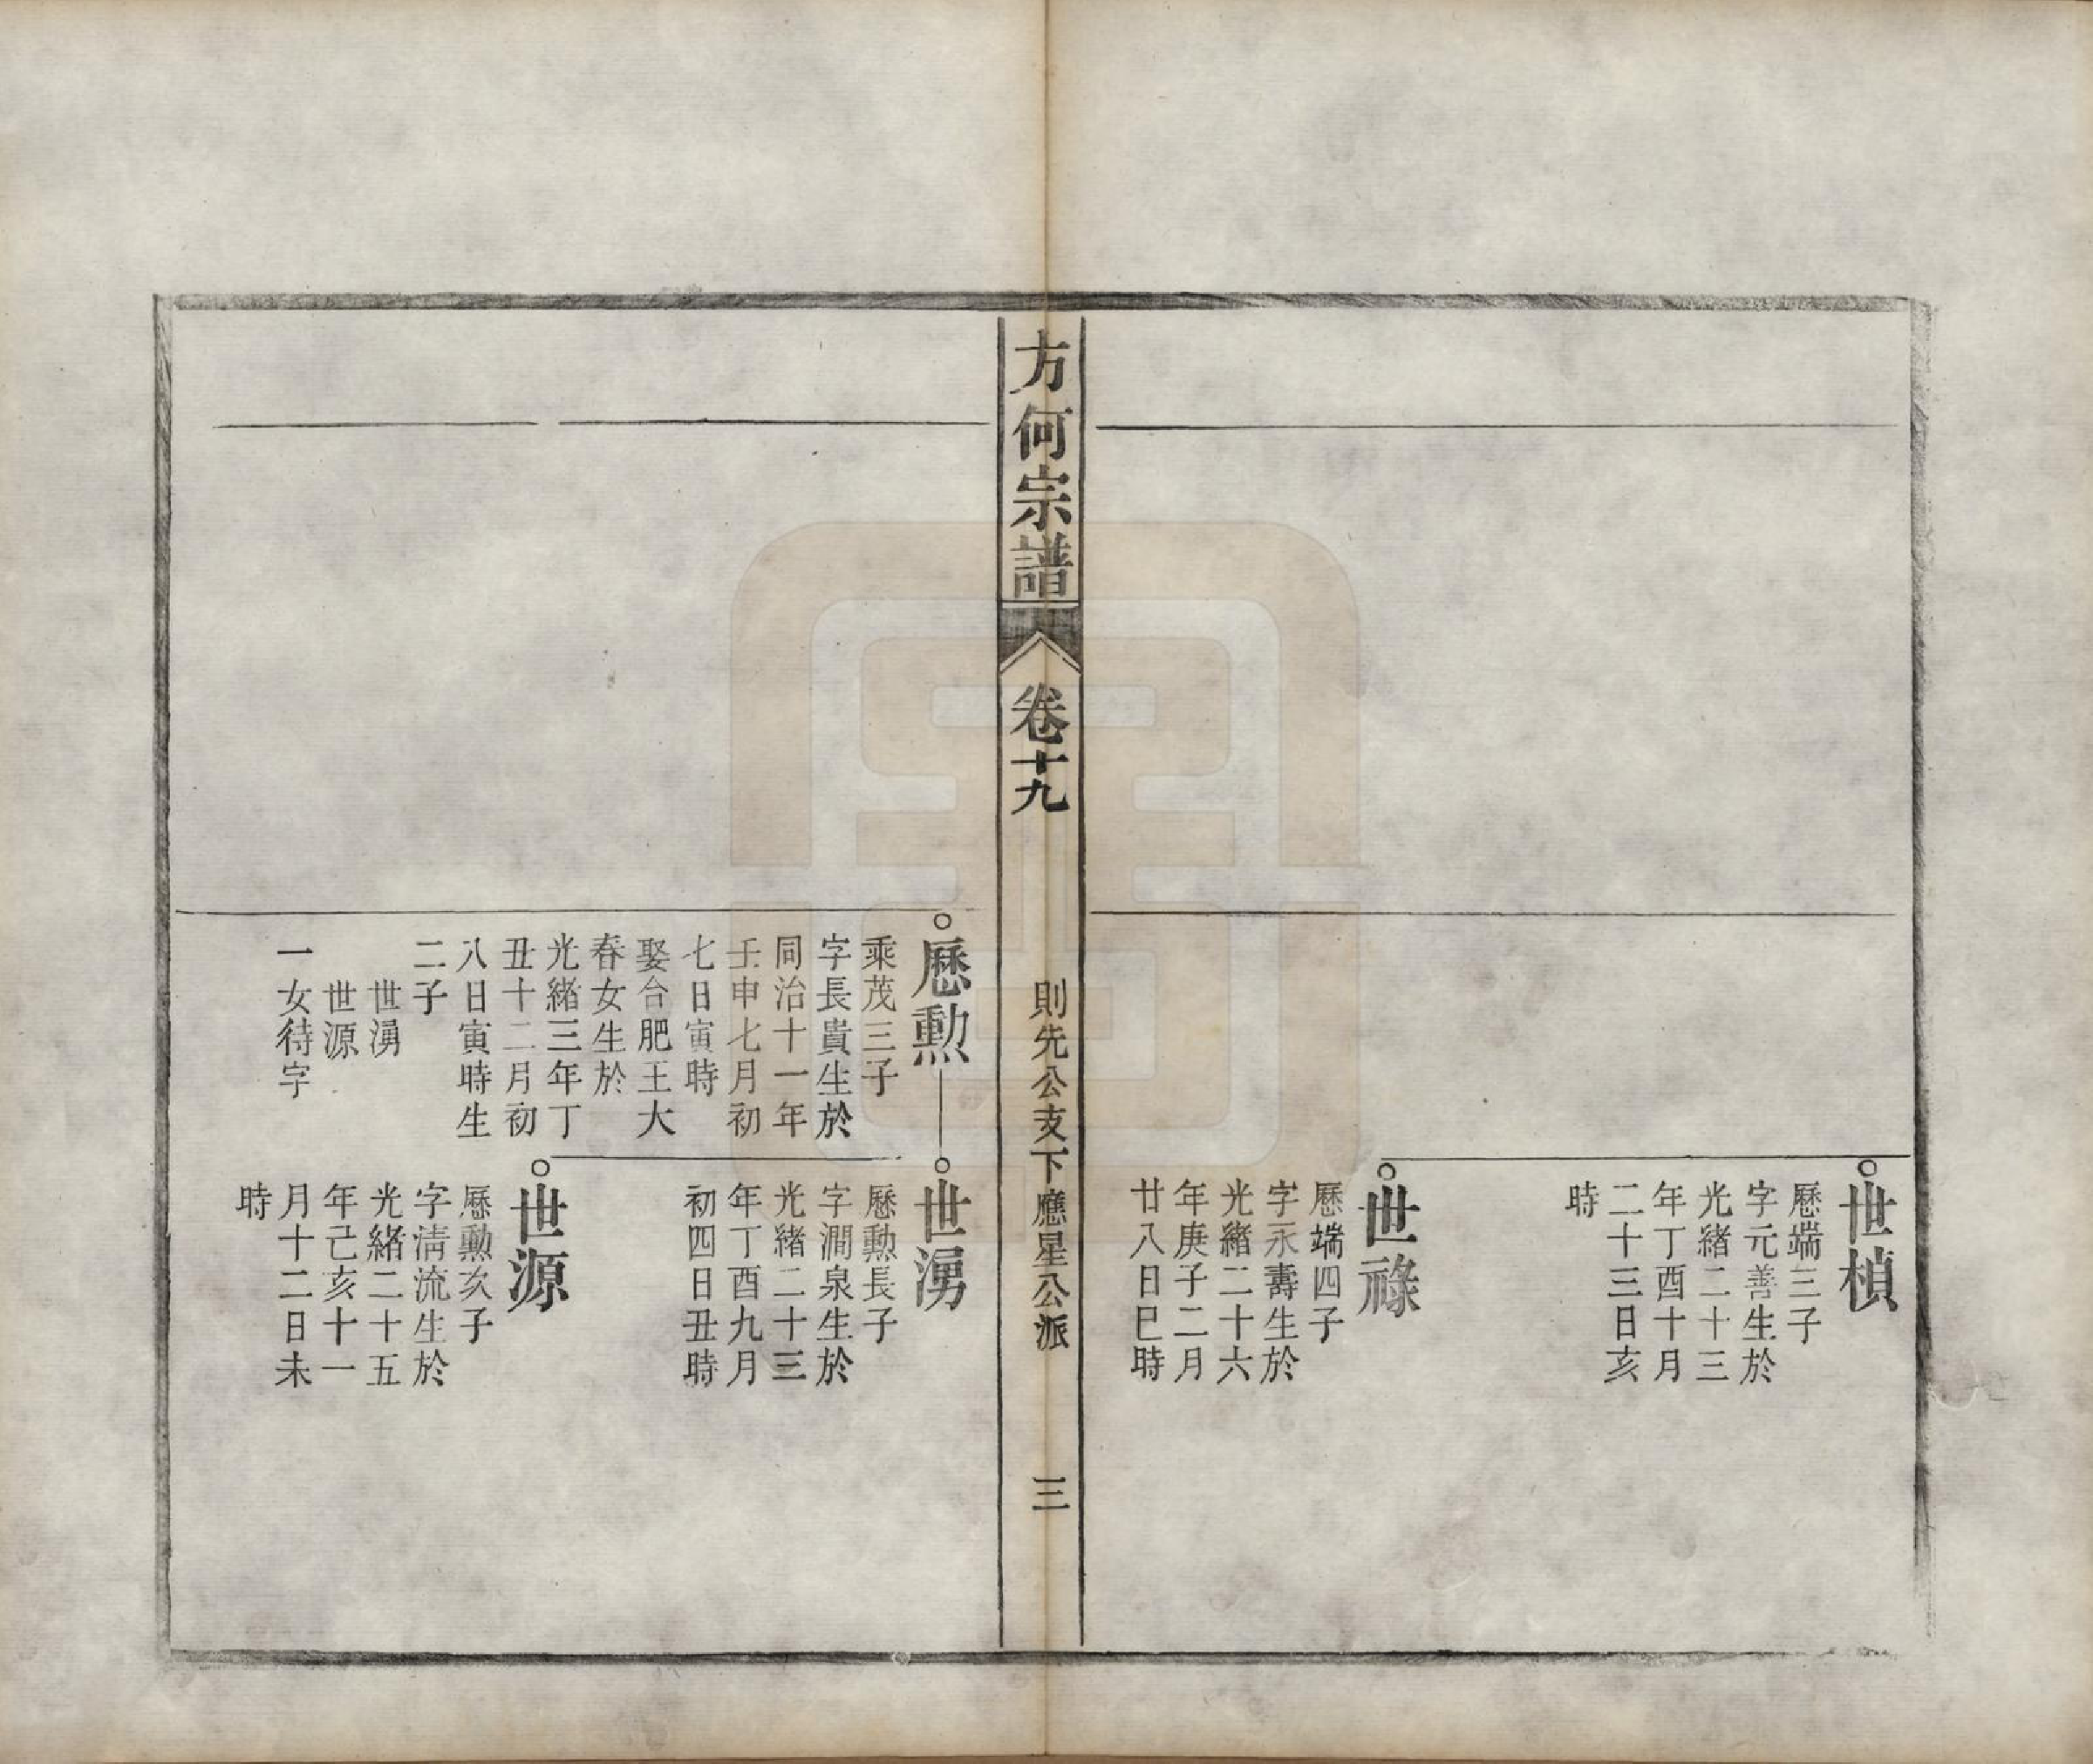 世楨
歷端三子
字元善生於
光緒二十三
年丁酉十月
二十三日亥
時
世祿
歷端四子
字永壽生於
光緒二十六
年庚子二月
廿八日巳時
方何宗譜
卷十九
則先公支下應星公派
三
歷勲
乘茂三子
字長貴生於
同治十一年
壬申七月初
七日寅時
娶合肥王大
春女生於
光緒三年丁
丑十二月初
八日寅時生
二子
世湧
世源
一女待字
世湧
歷勲長子
字澗泉生於
光緒二十三
年丁酉九月
初四日丑時
世源
歷勲次子
字清流生於
光緒二十五
年己亥十一
月十二日未
時